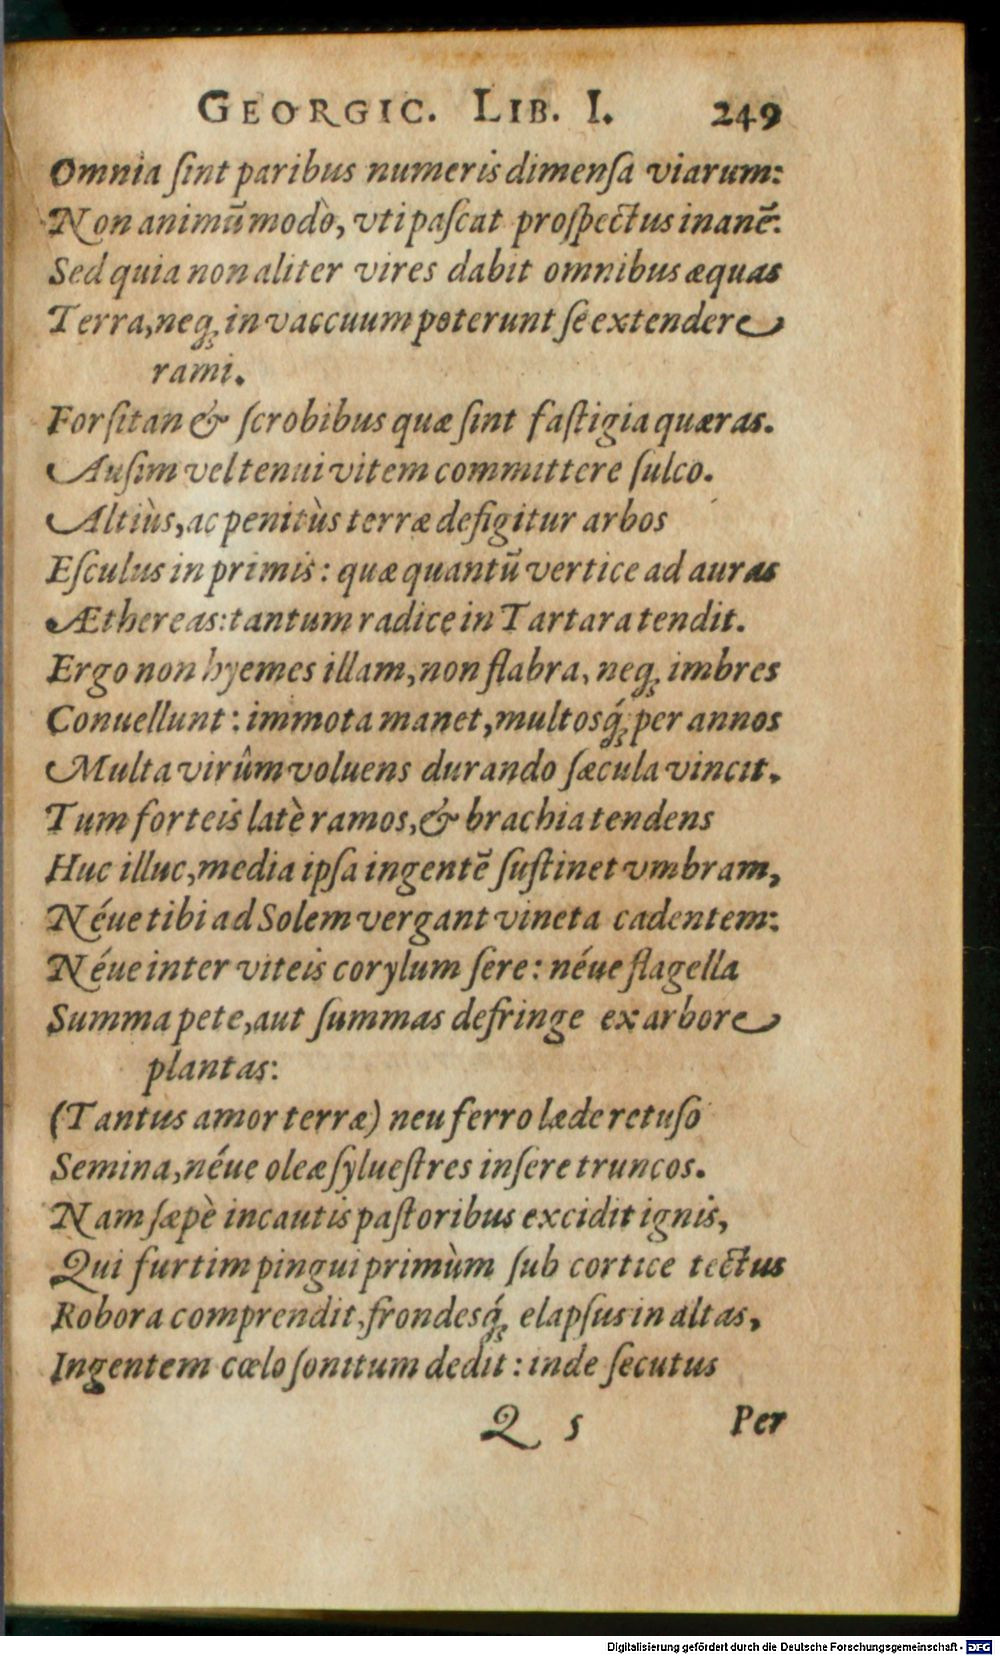 GEORGIC. LIB. I. 249
Omnia ſint paribus numeris dimenſa viarum:
Non animū modò, vti paſcat proſpectus inanē:
Sed quia non aliter vires dabit omnibus æquas
Terra, neq; in vaccuum poterunt ſe extendere
rami.
Forſitan & ſcrobibus quæ ſint faſtigia quæras.
Auſim vel tenui vitem committere ſulco.
Altiùs, ac penitùs terræ defigitur arbos
Eſculus in primis: quæ quantū vertice ad auras
Æthereas: tantum radice in Tartara tendit.
Ergo non hyemes illam, non flabra, neq; imbres
Conuellunt: immota manet, multosq́; per annos
Multa virûm voluens durando ſæcula vincit.
Tum forteis latè ramos, & brachia tendens
Huc illuc, media ipſa ingentē ſuſtinet vmbram,
Néue tibi ad Solem vergant vineta cadentem:
Néue inter viteis corylum ſere: néue flagella
Summa pete, aut ſummas defringe ex arbore
plantas:
(Tantus amor terræ) neu ferro læde retuſo
Semina, néue oleæ ſylueſtres inſere truncos.
Nam ſæpè incautis paſtoribus excidit ignis,
Qui furtim pingui primùm ſub cortice tectus
Robora comprendit, frondesq́; elapſus in altas,
Ingentem cœlo ſonitum dedit: inde ſecutus
Q 5 Per
Digitalisierung gefördert durch die Deutsche Forschungsgemeinschaft - DFG